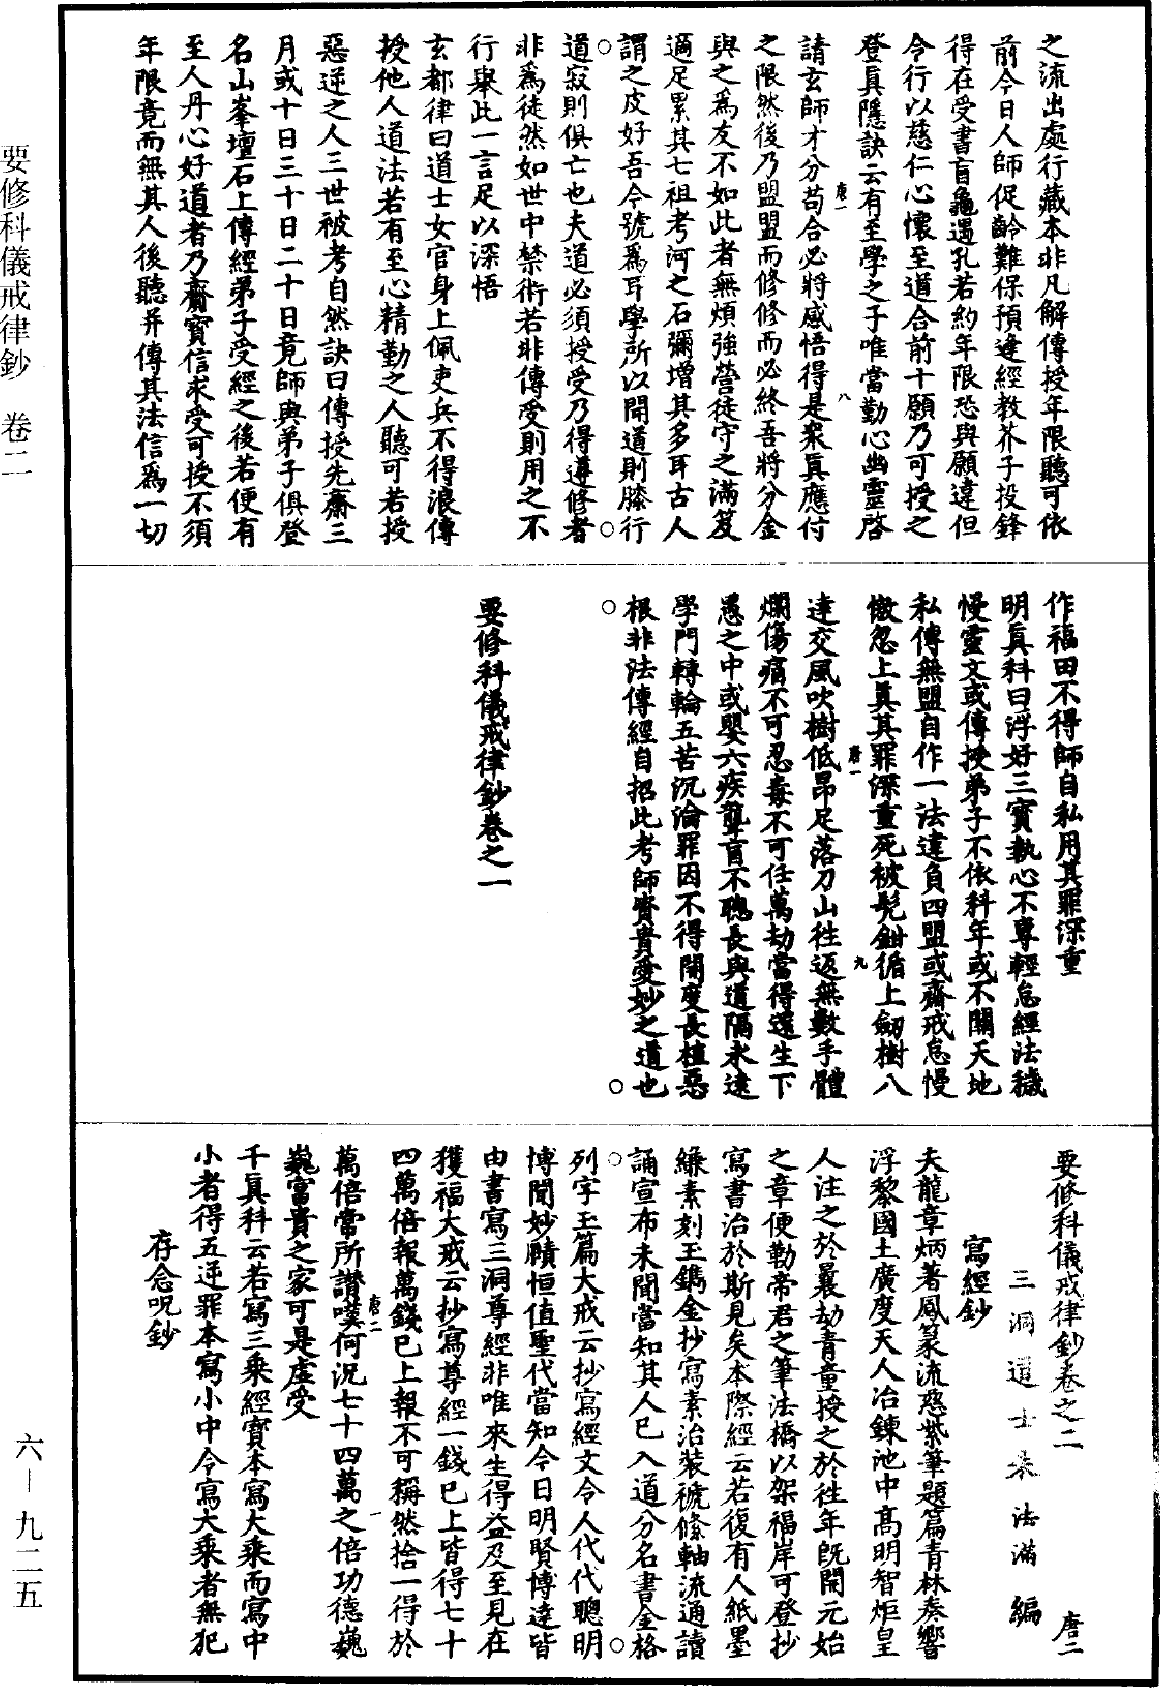 之流出處行藏本非凡解傳授年限聽可依
前今日人師促齡難保預逢經教芥子投鋒
得在受書盲龜遇孔若約年限恐與願違但
令行以慈仁心懷至道合前十願乃可授之
登真隱訣云有至學之子唯當勤心幽靈啓
請玄師才分苟合必將感悟得是衆真應付
之限然後乃盟盟而修修而必終吾將分金
與之爲友不如此者無煩強營徒守之滿笈
適足累其七祖考河之石彌增其多耳古人
謂之皮好吾今號爲耳學所以開道則膝行
道寂則俱亡也夫道必須授受乃得遵修者
非爲徒然如世中禁術若非傳受則用之不
行舉此一言足以深悟
玄都律曰道士女官身上佩吏兵不得浪傳
授他人道法若有至心精勤之人聽可若授
惡逆之人三世被考自然訣曰傳授先齋三
月或十日三十日二十日竟師與弟子俱登
名山峯壇石上傳經弟子受經之後若便有
至人丹心好道者乃齎寶信求受可授不須
年限竟而無其人後聽并傳其法信爲一切
唐一
八
作福田不得師自私用其罪深重
明真科曰浮好三寶執心不專輕怠經法穢
慢靈文或傳授弟子不依科年或不關天地
私傳無盟自作一法違負四盟或齋戒怠慢
傲忽上真其罪深重死被髡鉗循上劒樹八
達交風吹樹低昂足落刀山往返無數手體
爛傷痛不可忍毒不可任萬劫當得還生下
愚之中或嬰六疾聾盲不聰長與道隔永遠
學門轉輪五苦沉淪罪因不得開度長植惡
根非法傳經自招此考師寶貴愛妙之道也
唐一
九
要修科儀戒律鈔卷之一
要修科儀戒律鈔卷之二
唐二
三洞道士朱法滿編
寫經鈔
夫龍章炳著鳳篆流慈紫筆題篇青林奏響
浮黎國土廣度天人冶鍊池中高明智炬皇
人注之於曩劫青童授之於往年旣開元始
之章便勒帝君之筆法橋以架福岸可登抄
寫書治於斯見矣本際經云若復有人紙墨
縑素刻玉鐫金抄寫素治裝褫絛軸流通讀
誦宣布未聞當知其人已入道分名書金格
列字玉篇大戒云抄寫經文令人代代聰明
博聞妙賾恒值聖代當知今日明賢博達皆
由書寫三洞尊經非唯來生得益及至見在
獲福大戒云抄寫尊經一錢已上皆得七十
四萬倍報萬錢已上報不可稱然捨一得於
萬倍常所讚嘆何況七十四萬之倍功德巍
巍富貴之家可是虛受
千真科云若寫三乘經寶本寫大乘而寫中
小者得五逆罪本寫小中今寫大乘者無犯
存念呪鈔
唐二
一
要修科儀戒律鈔 卷二
六—九二五